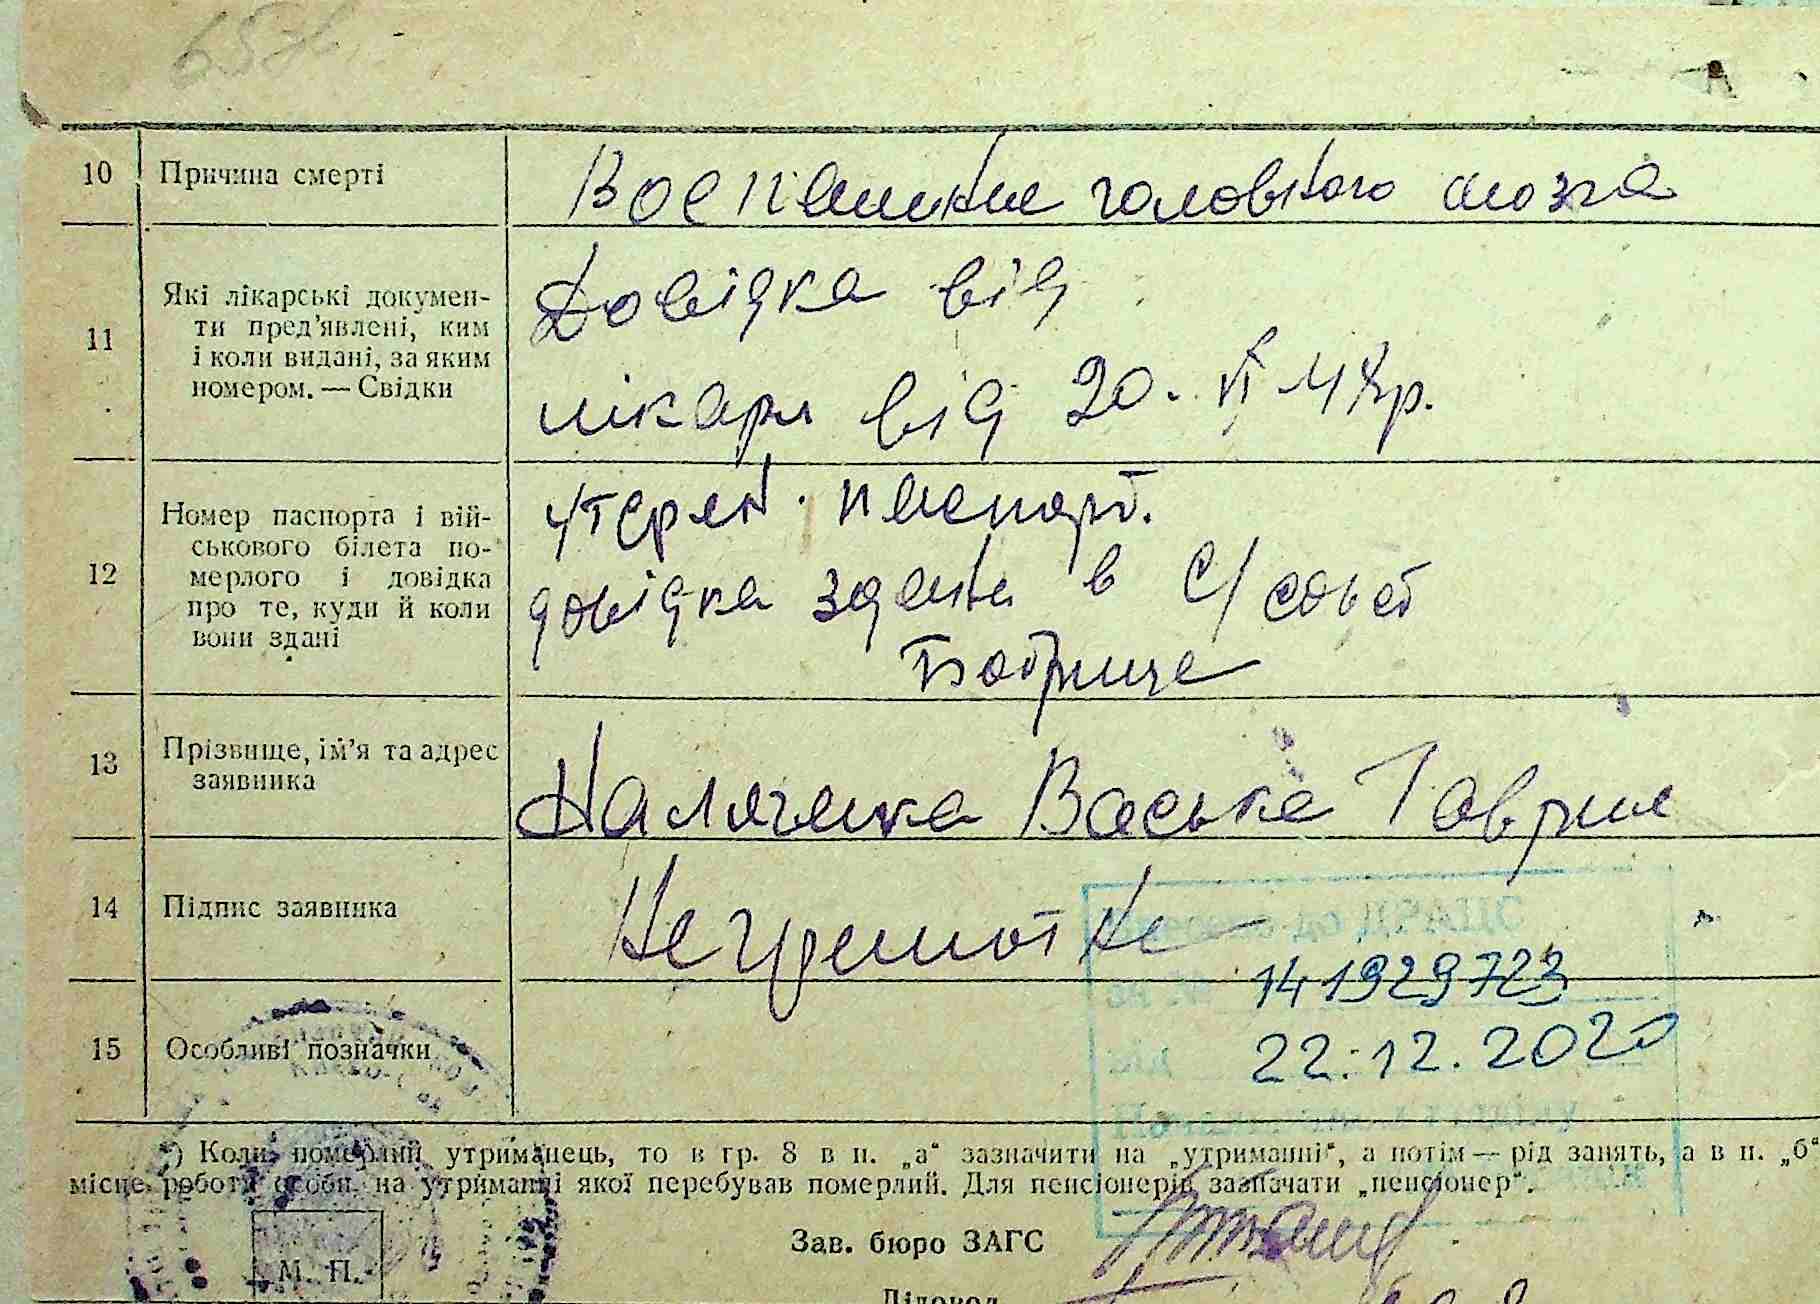 10 Причина смерті Воспаление головного мозга
11 Які лікарські докумен-
ти пред'явлені, ким
і коли видані, за яким
номером. — Свідки
Довідка від
лікаря від 20. VI 48р.
12 Номер паспорта і вій-
ськового білета по-
мерлого і довідка
про те, куди й коли
вони здані
утерян. паспорт.
довідка здана в с/совет
13 Прізвище, ім'я та адрес
заявника
Васька Гаврил
14 Підпис заявника Неграмотна
141929723
15 Особливі позначки
22.12.2020
*) Коли померлий утриманець, то в гр. 8 в п. „а“ зазначити на „утриманні“, а потім — рід занять, а в п. „б“
місце роботи особи, на утриманні якої перебував померлий. Для пенсіонерів зазначати „пенсіонер“.
Зав. бюро ЗАГС
М. П.
Діловод